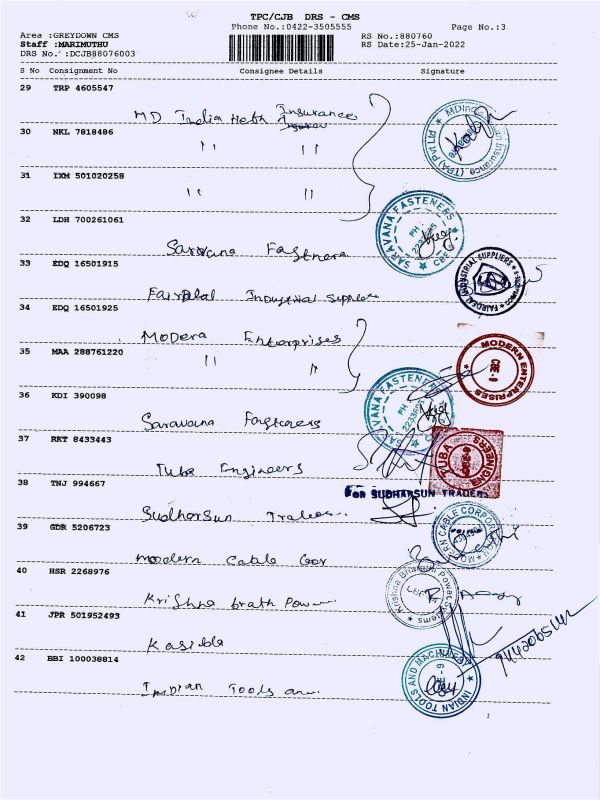 TPC/CJB DRS - CMS
Phone No.:0422-3505555
Page No.:3
Area :GREYDOWN CMS
Staff :MARIMUTHU
DRS No.:DCJB88076003
RS No.:880760
RS Date:25-Jan-2022
S No Consignment No Consignee Details Signature
29 TRP 4605547
MD India Helth Insurance
30 NKL 7818486
" "
31 IXM 501020258
" "
32 LDH 700261061
Saravana Fastnera
SARAVANA FASTENERS
33 EDQ 16501915
Fairdal Industrial Supplie
INDUSTRIAL SUPPLIERS
34 EDQ 16501925
Modern Enterprises
MODERN ENTERPRISES
35 MAA 288761220
" "
36 KDI 390098
Saravana Fasteners
SARAVANA FASTENERS
37 RKT 8433443
Tuba Engineers
TUBA ENGINEERS
38 TNJ 994667
For SUDHARSUN TRADERS
Sudharsun Traders
39 GDR 5206723
Modern Cable Cor
MODERN CABLE CORPORATION
40 HSR 2268976
Krishna brath Power
Krishna Bharath Power Systems
41 JPR 501952493
Kasilda
9442065142
42 BBI 100038814
Indian Tools an
INDIAN TOOLS AND MACHINERY